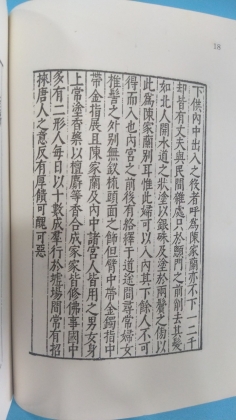 下供內中出入之役者呼爲陳家蘭亦不下一二千
却皆有丈夫與民間雜處只於顖門之前削去其髮
如北人開水道之狀塗以銀硃及塗於兩鬢之傍以
此爲陳家蘭別耳惟此婦可以入內其下餘人不可
得而入也內宮之前後有絡繹于道途間尋常婦女
椎髻之外別無釵梳頭面之飾但臂中帶金鐲指中
帶金指展且陳家蘭及內中諸宮人皆用之男女身
上常塗香藥以檀麝等香合成家家皆修佛事國中
多有二形人每日以十數成羣行於墟場間常有招
徠唐人之意反有厚饋可醜可惡